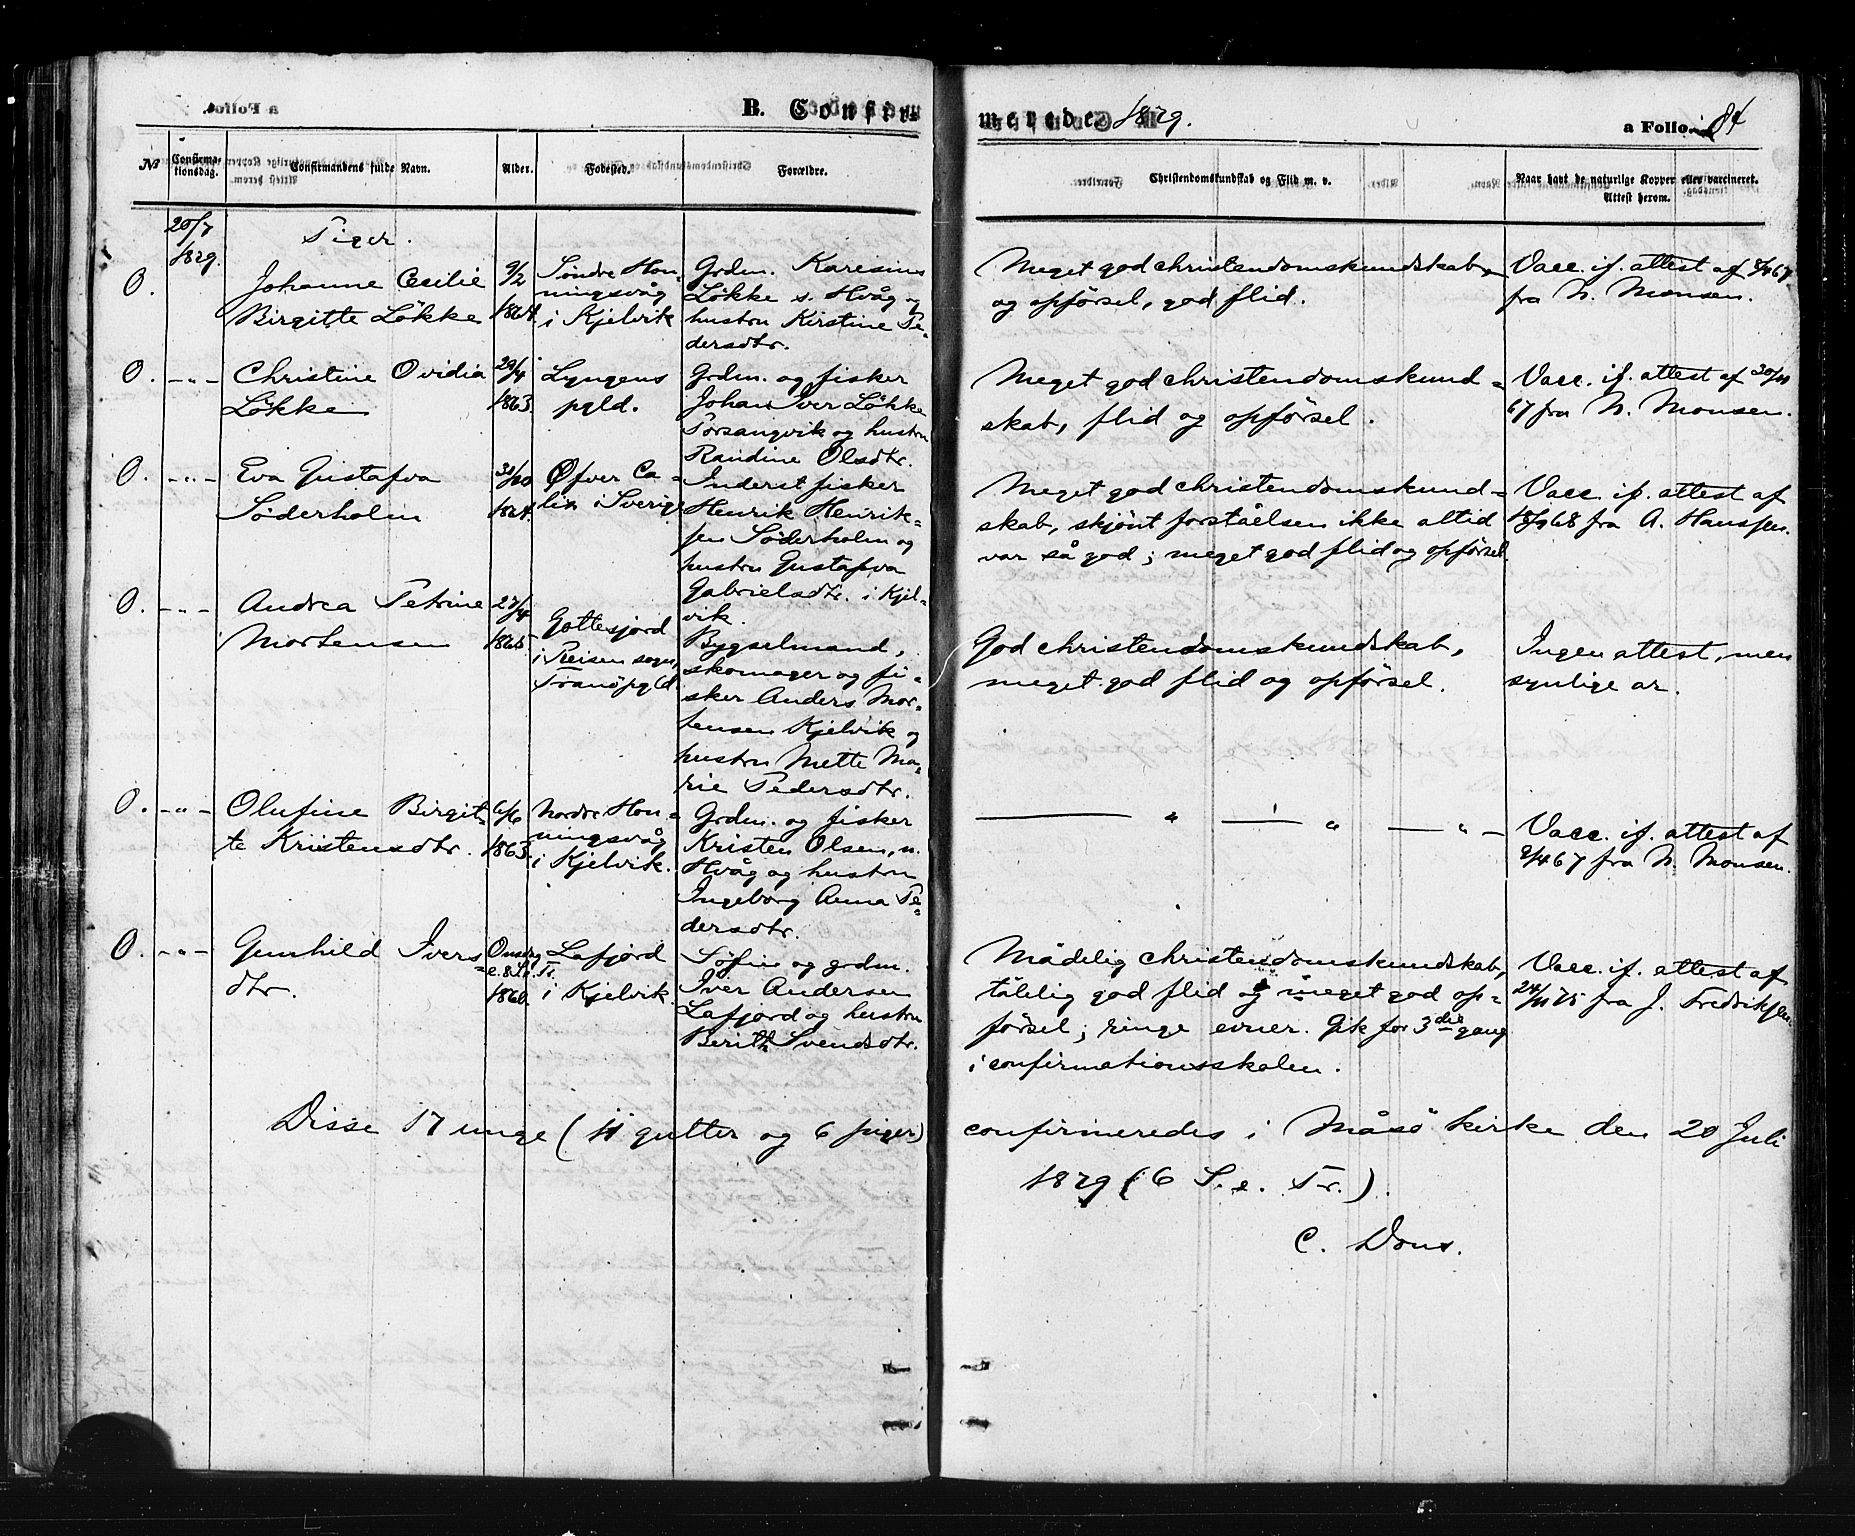 B. Confir-
merede 1879.
a Folio. 84
№
Confirma-
tionsdag.
Confirmandens fulde Navn.
Alder.
Fødested.
Forældre.
Christendomskundskab og Flid m. v.
Naar havt de naturlige Kopper eller vaccineret.
Attest herom.
20/7
1879.
Piger.
O.
Johanne Cecilie
Birgitte Løkke
9/2
1864.
Søndre Hon-
ningsvåg
i Kjelvik
Grdm. Karesius
Løkke s. Hvåg og
hustru Kirstine Pe-
dersdtr.
Meget god christendomskundskab,
og opførsel, god flid.
Vacc. if. attest af 8/4 67
fra N. Monsen.
O. -"-
Christine Ovidia
Løkke
29/4
1863.
Lyngens
pgld.
Grdm. og fisker
Johan Iver Løkke
Porsangvik og hustru
Randine Olsdtr.
Meget god christendomskund-
skab, flid og opførsel.
Vacc. if. attest af
67 fra N. Monsen.
O. -"-
Eva Gustafva
Søderholm
30/10
1864.
Øfver Ca-
lix i Sverig
Inderst fisker
Henrik Henrik-
sen Söderholm og
hustru Gustafva
Gabrielsdtr. i Kjel-
vik.
Meget god christendomskund-
skab, skjønt forståelsen ikke altid
var så god; meget god flid og opførsel.
Vacc. if. attest af
68 fra A. Hanssen.
O. -"-
Andrea Petrine
Mortensen
27/4
1865
Gottesjord
i Reisen sogn,
Tranö pgld.
Bygselmand,
skomager og fi-
sker Anders Mor-
tensen Kjelvik og
hustru Mette Ma-
rie Pedersdtr.
God christendomskundskab,
meget god flid og opførsel.
Ingen attest, men
synlige ar.
O. -"-
Olufine Birgit-
te Kristensdtr.
6/6
1863.
Nordre Hon-
ningsvåg
i Kjelvik.
Grdm. og fisker
Kristen Olsen, n.
Hvåg og hustru
Ingeborg Anna Pe-
dersdtr.
— " — " — " —
Vacc. if. attest af
8/4 67 fra N. Monsen.
O. -"-
Gunhild Ivers-
dtr.
e. 8 S. Tr.
1860.
Lafjord
i Kjelvik.
Søfin og grdm.
Iver Andersen
Lafjord og hustru
Berith Svendsdtr.
Mådelig christendomskundskab,
tålelig god flid og meget god op-
førsel; ringe evner. Gik for 3die gang
i confirmationsskolen.
Vacc. if. attest af
24/11 75 fra J. Fredriksen.
Disse 17 unge (11 gutter og 6 piger)
confirmeredes i Måsö kirke den 20 Juli
1879 (6 S. e. Tr.).
C. Dons.